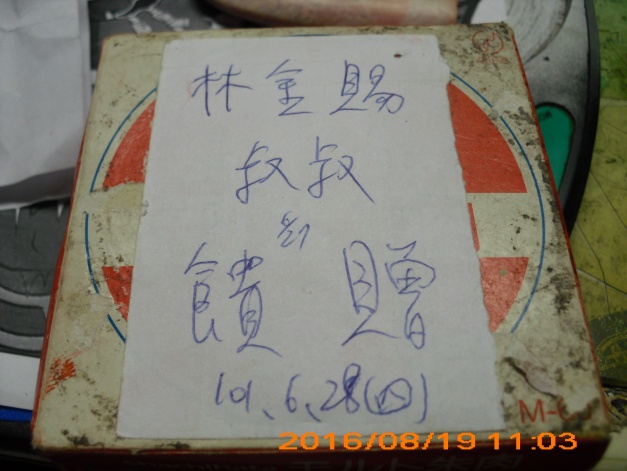 林金賜
叔叔
饋贈
101、6、28(四)
2016/08/19 11:03